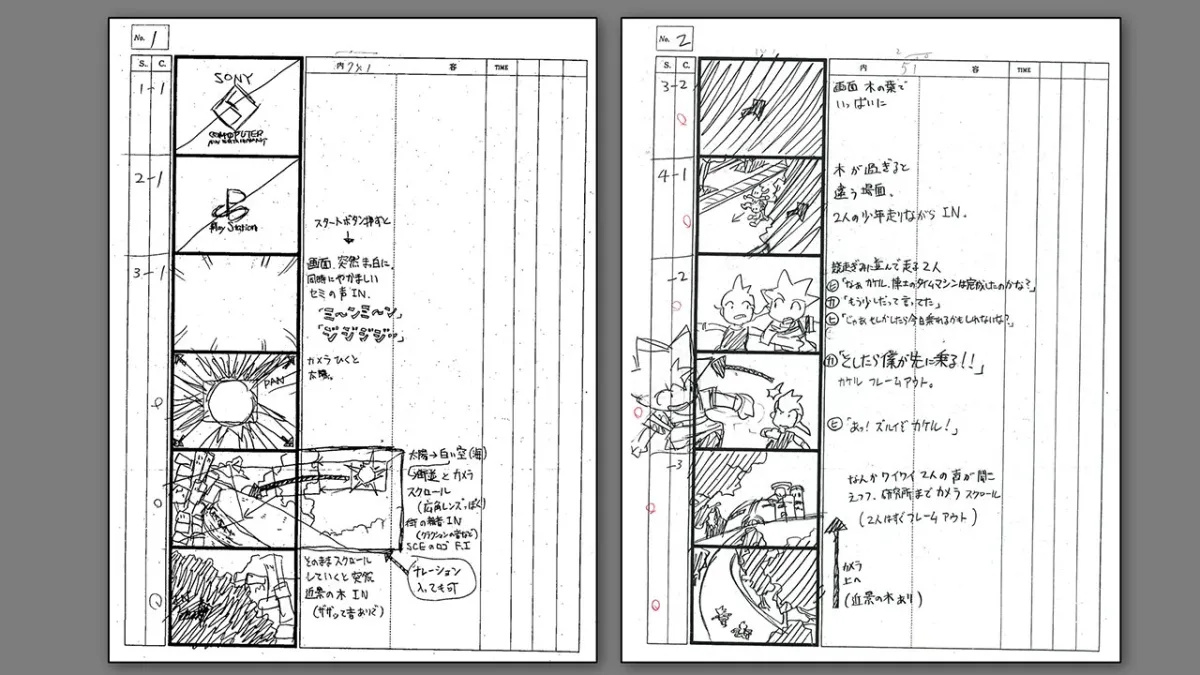 No. 1
S. C. 内 容 TIME
1-1
SONY
COMPUTER
2-1
Play Station
スタートボタン押すと
3-1
画面、突然真白に、
同時にやかましい
セミの声IN.
「ミ〜ンミ〜ン」
「ジジジジ‥」
カメラひくと
太陽。
PAN
太陽→白い空(海)
→街並とカメラ
スクロール
(広角レンズっぽく)
街の騒音IN
(クラクションの音など)
SCEのロゴ F.I
ナレーション
入っても可
そのままスクロール
していくと突然
近景の木 IN
(ザザって音ありで)
No. 2
S. C. 内 容 TIME
3-2
画面 木の葉で
いっぱいに
4-1
木が過ぎると
違う場面。
2人の少年走りながら IN.
-2
競走ぎみに並んで走る2人
ヒ「なぁ カケル、博士のタイムマシンは完成したのかな?」
カ「もう少しだって言ってた」
ヒ「じゃあ もしかしたら今日乗れるかもしれないな?」
カ「としたら僕が先に乗る!!」
カケル フレームアウト。
ヒ「あっ! ズルイぞ カケル!」
-3
なんかワイワイ 2人の声が聞こ
えつつ、研究所まで カメラ スクロール
(2人はすぐフレームアウト)
カメラ
上へ
(近景の木あり)